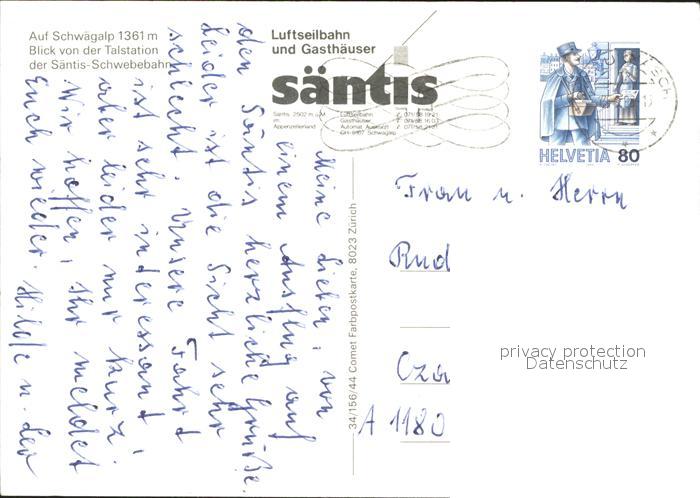 Auf Schwägalp 1361 m
Blick von der Talstation
der Säntis-Schwebebahn
Luftseilbahn
und Gasthäuser
säntis
Säntis 2502 m ü.M.
im
Appenzellerland
Luftseilbahn
Gasthäuser
Automat. Auskunft
CH-9107 Schwägalp
HELVETIA 80
Meine Lieben, von
einem Ausflug auf
den Säntis herzliche Grüße.
Leider ist die Sicht sehr
schlecht. Unsere Fahrt
ist sehr interessant,
aber leider nur kurz,
Wir hoffen, Ihr meldet
Euch wieder. Hilde u. der
34/156/44 Comet Farbpostkarte, 8023 Zürich
Frau u. Herrn
Rud
Cza
A 1180
privacy protection
Datenschutz